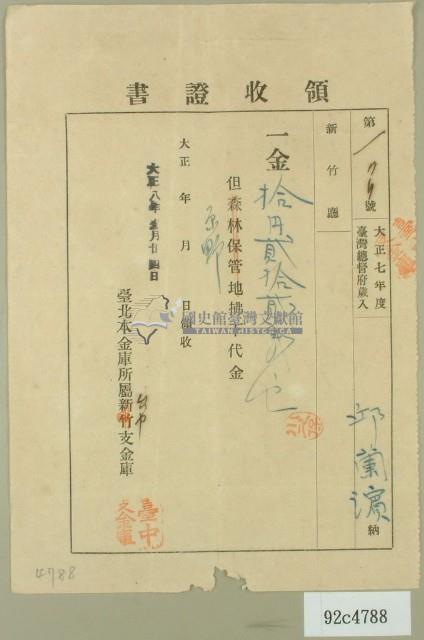 領收證書
第一七号號
大正七年度
臺灣總督府歲入
邱蘭濱納
新竹廳
一金拾円貳拾貳錢
但森林保管地拂下代金
原野
大正 年 月 日領收
大正八年 月廿四日
臺北本金庫所屬新竹支金庫
台中
臺中支金庫
國史館臺灣文獻館
TAIWAN HISTORICA
4788
92c4788